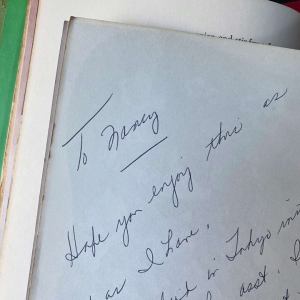 To Nancy
Hope you enjoy this as
as I have.
in Tokyo in
asst. I